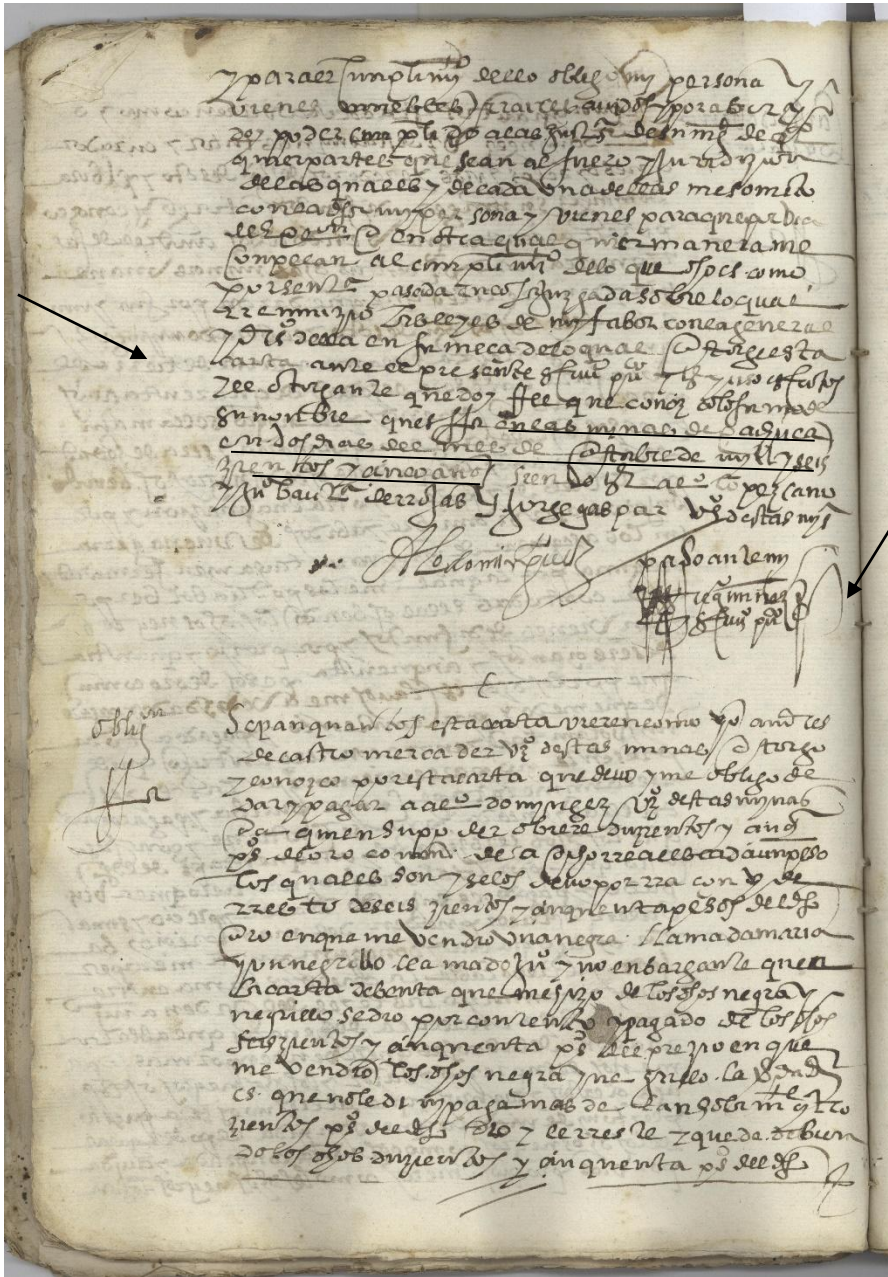 y para el cumplimiº dello obligo my persona
y vienes muebles e rraices avidos y por aver y
doy poder cumplido a las justªs de su mgᵈ de qˡ
quier partes que sean al fuero y jurisdizion
de las quales y de cada una dellas me someto
con la dha my persona y vienes para que por via
en otra qualquier manera me
conpelan al cumplimiº dello que dho es como
por sentª pasada en cosa juzgada sobre lo qual
rrenunzio las leyes de my fabor con la general
y drºs della en firmeza de lo qual otorgue esta
carta ante el presente sriuº puº y tºs yuso scritos
y el otorgante que doy ffee que conozco lo firmo de
su nonbre ques ffª en las minas de pachuca
en dos dias del mes de otubre de mill y seis
zientos y cinco años siendo tºs alº lopez cano
y juº bautª de rrojas y jorge gaspar vºs destas mys
Alº dominguez
paso ante my
sriuº puº
oblignº
Sepan quantos esta carta vieren como yo andres
de castro mercader vº destas minas otorgo
y conozco por esta carta que devo y me obligo de
dar y pagar a alº dominguez vº destas mynas
o a quien su poder obiere duzientos y cinqᵗª
pºs de oro comun de a ocho rreales cada un peso
los quales son y se los devo por rrazon y de
rresto de seis zientos y cinquenta pesos del dho
oro en que me vendio una negra llamada maria
y un negrillo llamado juº y no enbargante que en
la carta de benta que me hizo de los dhos negra y
negrillo se dio por contento y pagado de los dhos
seiszientos y cinquenta pºs del prezio en que
me vendio los dhos negra y negrillo la verdad
es que no le di ny pague mas de tan solamᵗᵉ qtro
zientos pºs del dho oro y le rresto y quedo debiendo
los dhos duzientos y cinquenta pºs del dho